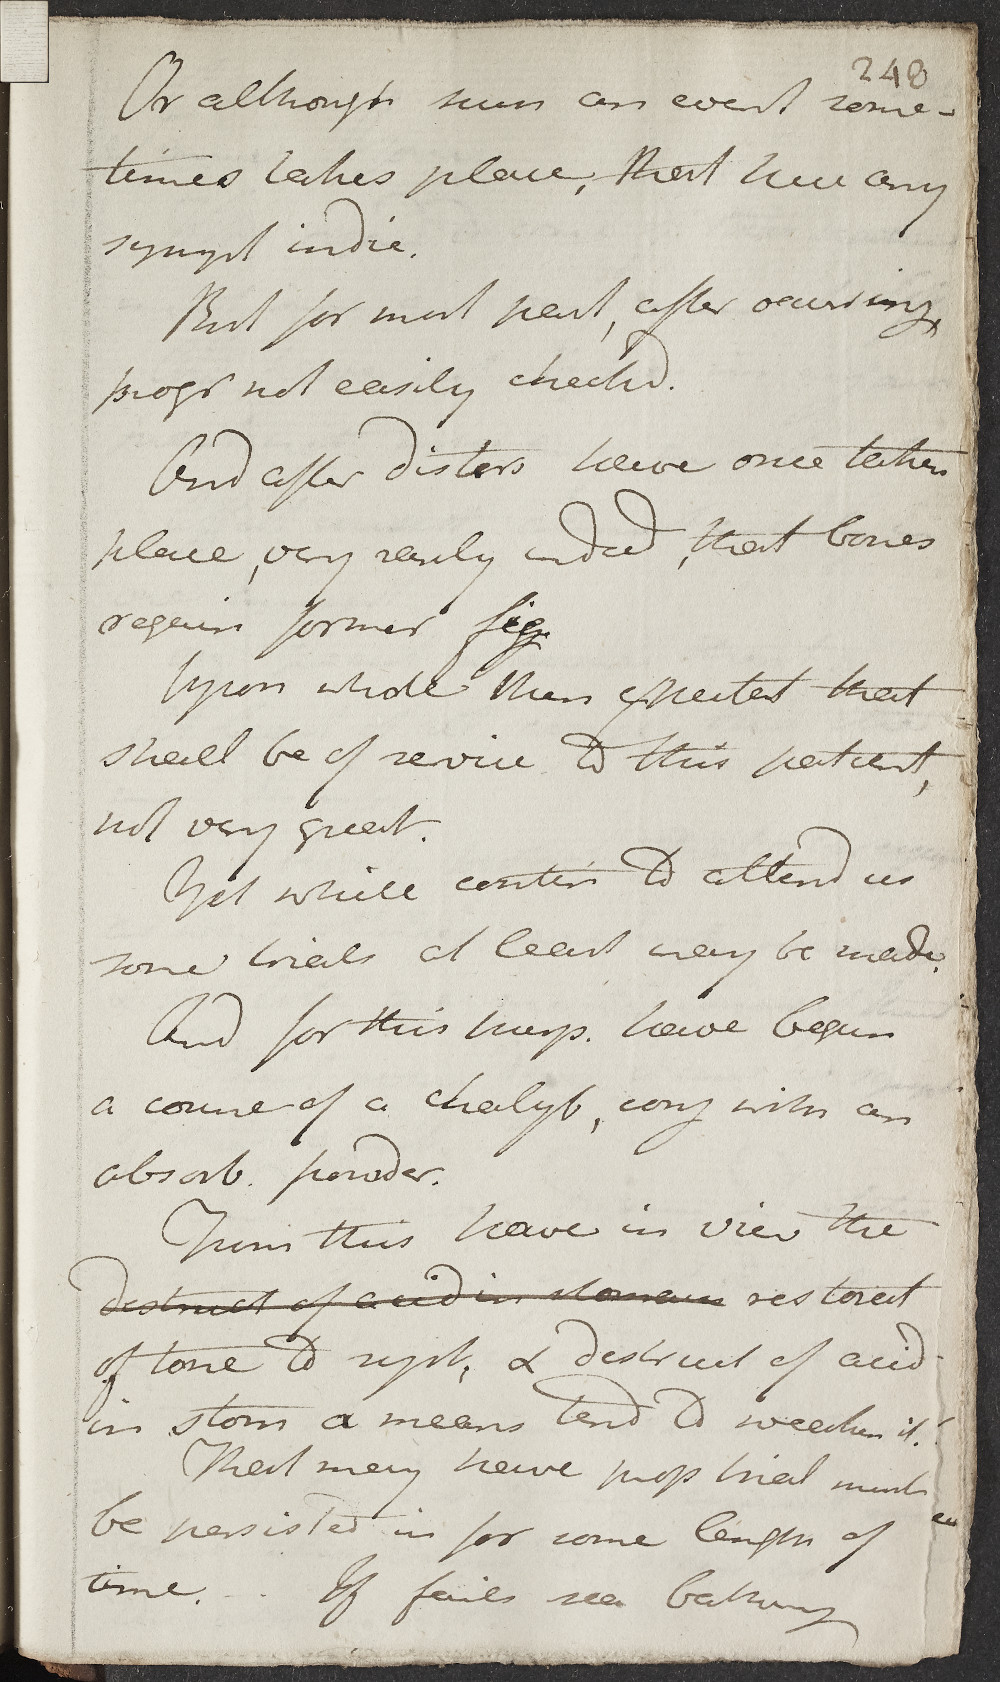 248
Or although such an event some-
times takes place, that here any
sympt indic.
But for most part, after occurring,
progr not easily check'd.
And after distors have once taken
place, very rarely indeed, that bones
regain former fig.
Upon whole then expectat that
shall be of service to this patient,
not very great.
Yet while contin to attend us
some trials at least may be made.
And for this purp. have begun
a course of a chalyb, conj with an
absorb. powder.
From this have in view the
destruct of acid in stomach restorat
of tone to syst, & destruct of acid
in stom a means tend to weaken it.
That may have prop trial must
be persisted in for some length of
time. If fails sea bathing